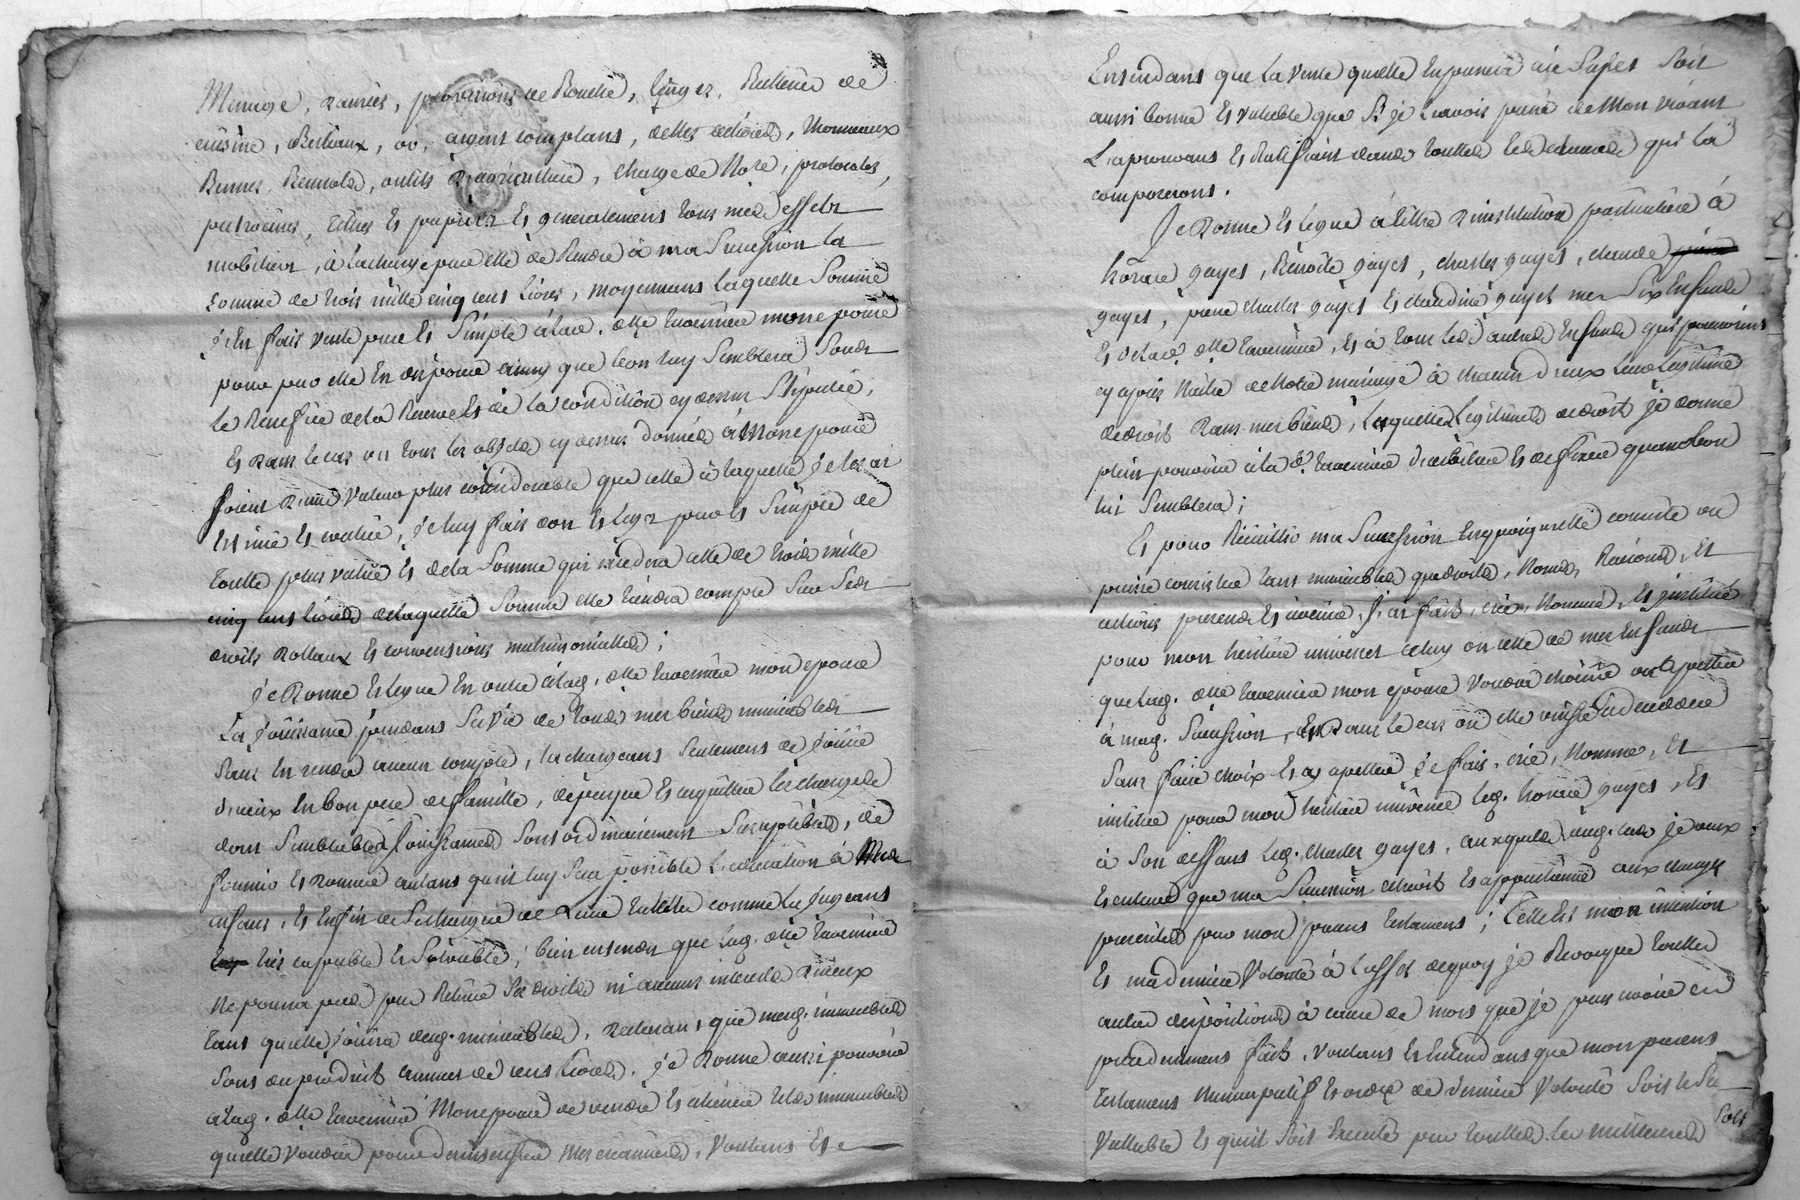 Menage, danrées, provisions de Bouche, linges, Batterie de
cuisine, Bestiaux, or, argent comptans, dettes actives, Monceaux
Bennes, Bennots, outils D'agriculture, charge de Note, protocoles,
titres Es papiers Es generalement tous mes effets
mobiliers, à la charge pour elle de Rendre à ma Succession la
somme de trois mille cinq cens livres, moyennans laquelle Somme
j'en fais vente pure Es Simple à lad. dlle taverniere mon epouse
pour par elle En disposer ainsy que bon luy Semblera Sous
le Benefice de la Reserve Es de la condition cy dessus Stipulée,
Es Dans le cas ou tous les objets cy dessus donnés à Mon epouse
fusent D'une Valeur plus considerable que celle à laquelle je les ai
Estimé Es evalué, je luy fais don Es legs pur Es Simple de
toutte plus value Es de la Somme qui excedera celle de trois mille
cinq cens livres de laquelle Somme elle tiendra compte Sur Ses
droits Dottaux Es conventions matrimonialles;
Je Donne Es legue En outre à lad. dlle taverniere mon epouse
La Jouissance pendans Sa Vie de tous mes biens immeubles
Sans En rendre aucun compte, la chargeans Seulement de Jouir
d'iceux En bon pere de famille, de payer Es acquitter les charges
dont Semblables Jouissances Sont ordinairement Susceptibles, de
fournir Es Donner autans qu'il luy Sera possible L'education à Mes
enfans, Es Enfin de Se charger de Leur tutelle comme La Jugeans
très capable Es Solvable; bien entendu que lad. dlle taverniere
Ne pourra pas par Retenir Ses droits ni aucuns interets D'iceux
tans qu'elle Jouira desd. immeubles, Declarans que mesd. immeubles
Sont du produit annuel de cens Livres. Je Donne aussi pouvoir
à lad. dlle taverniere Mon epouse de vendre Es aliener telles immeubles
qu'elle Voudra pour Mes creanciers, Voulans Es
Entendans que La Vente qu'elle En pourra Soit
aussi bonne Es Valable que Si je L'avois passé de Mon vivans
L'aprouvans Es Ratifians dans touttes les clauses qui la
composerons.
Je Donne Es legue à titre D'institution particuliere à
honoré gayes, Benoite gayes, charles gayes, claude
gayes, pierre charles gayes Es claudine gayes mes Six Enfans
Es de lad. dlle taverniere, Es à tous les autres Enfans qui pourroient
cy après Naitre de Notre mariage à chacun d'eux Leur Legitime
de droit Dans mes biens, Lesquelles Legitimes de droit je donne
plein pouvoir à la dlle taverniere d'arbitrer Es de fixer quand bon
lui Semblera;
Es pour Recueillir ma Succession En quoi qu'elle consiste ou
puisse consister tans immeubles que droits, Noms, Raisons, Es
actions presens Es avenir, j'ai fait, crée, Nommé, Es institué
pour mon heritier universel celuy ou celle de mes Enfans
que lad. dlle taverniere mon epouse Voudra choisir ou appeller
à mad. Succession, Es Dans le cas où elle vint à decedée
Sans faire choix Es y apeller je fais, crée, Nomme, Es
institue pour mon heritier universel led. honoré gayes, Es
à Son deffaut led. charles gayes, auxquels aud. cas je veux
Es entend que ma Succession Es appartienne aux charges
portées par mon present testament; telle Es mon intention
Es ma derniere Volonté à L'effet de quoy je Revoque touttes
autres dispositions à cause de mort que je puis avoir cy
precedemment fait, Voulans Es Entendans que mon presens
testament Nuncupatif Es ordre de derniere Volonté Soit le Seul
Vallable Es qu'il Soit Executé par touttes les meilleures
Sols